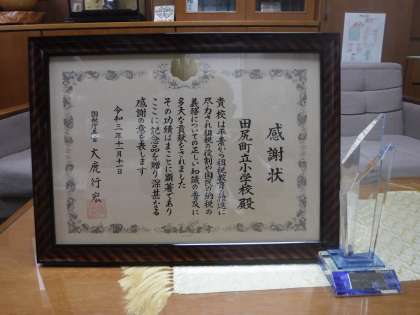 感謝状
田尻町立小学校殿
貴校は平素から租税教育の推進に
尽力され租税の役割や国民の納税の
義務についての正しい知識の普及に
多大な貢献をされました
その功績はまことに顕著であり
ここに記念品を贈り深甚なる
感謝の意を表します
令和三年十一月十一日
国税庁長官 大鹿行宏